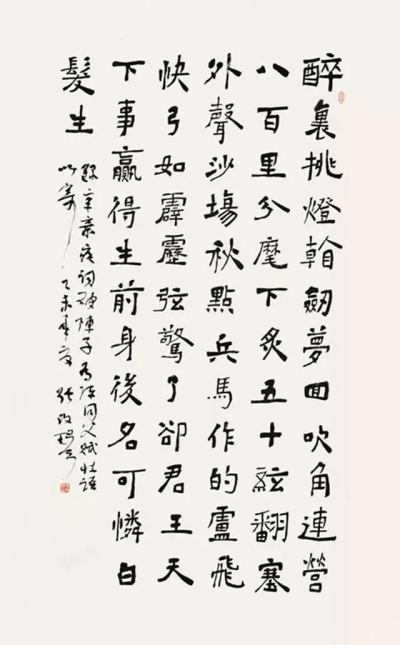 醉裏挑燈看劔夢回吹角連營
八百里分麾下炙五十絃翻塞
外聲沙場秋點兵馬作的盧飛
快弓如霹靂弦驚了卻君王天
下事贏得生前身後名可憐白
髮生
録辛棄疾詞破陣子爲陳同父賦壯語
以寄 乙未年 張改琴